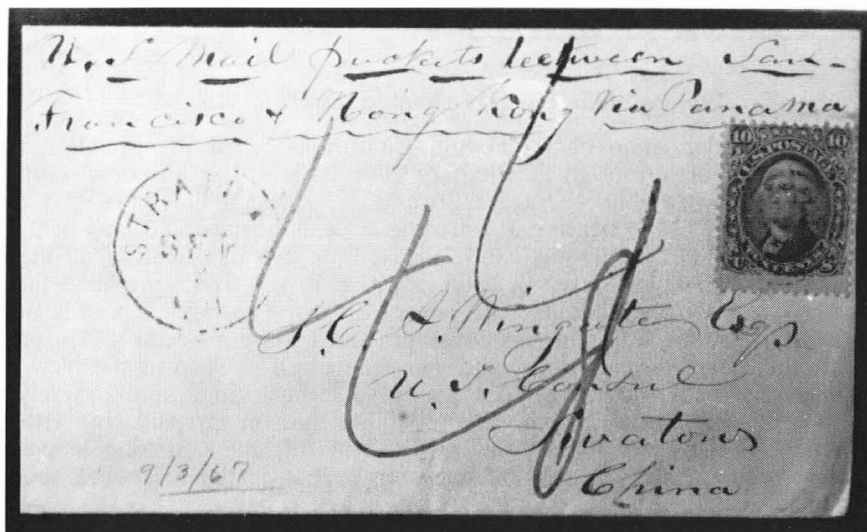 U. S Mail packets between San-
Francisco & Hong Kong Via Panama
10 10
U.S. POSTAGE
STRA
SEP
J. C. A. Wingate Esqr
U. S. Consul
Swatow
China
9/3/67